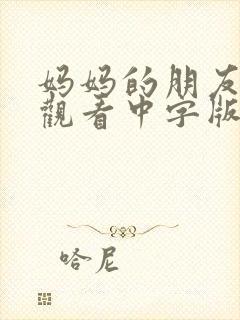 妈妈的朋友
觀看中字版
哈尼